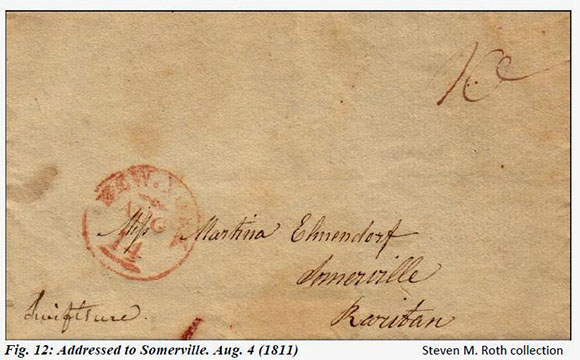 NEW.YORK
AUG
14
Miss Martina Elmendorf
Somerville
Raritan
Fig. 12: Addressed to Somerville. Aug. 4 (1811)
Steven M. Roth collection